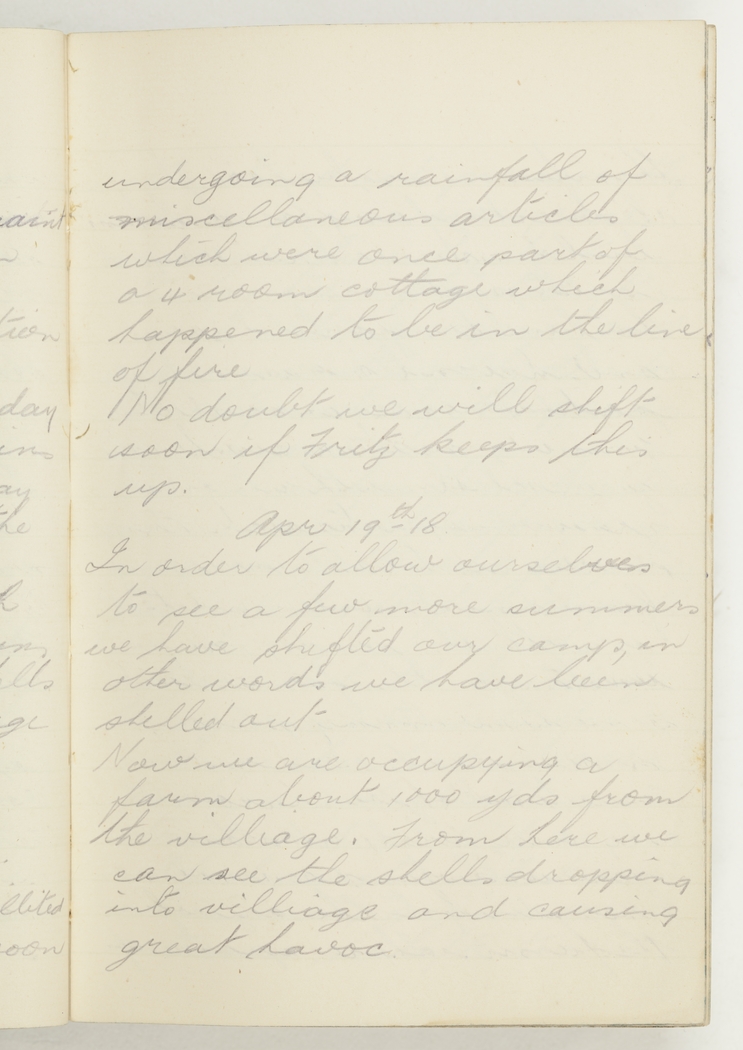 undergoing a rainfall of
miscellaneous articles
which were once part of
a 4 room cottage which
happened to be in the line
of fire
No doubt we will shift
soon if Fritz keeps this
up.
Apr 19th 18
In order to allow ourselves
to see a few more summers
we have shifted our camp, in
other words we have been
shelled out
Now we are occupying a
farm about 1000 yds from
the villiage. From here we
can see the shells dropping
into villiage and causing
great havoc.